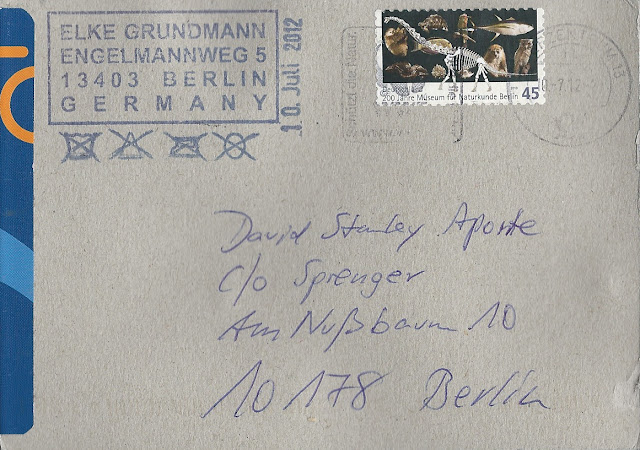 ELKE GRUNDMANN
ENGELMANNWEG 5
13403 BERLIN
GERMANY
10. Juli 2012
200 Jahre Museum für Naturkunde Berlin
45
David Stanley Aponte
c/o Sprenger
Am Nußbaum 10
10178 Berlin